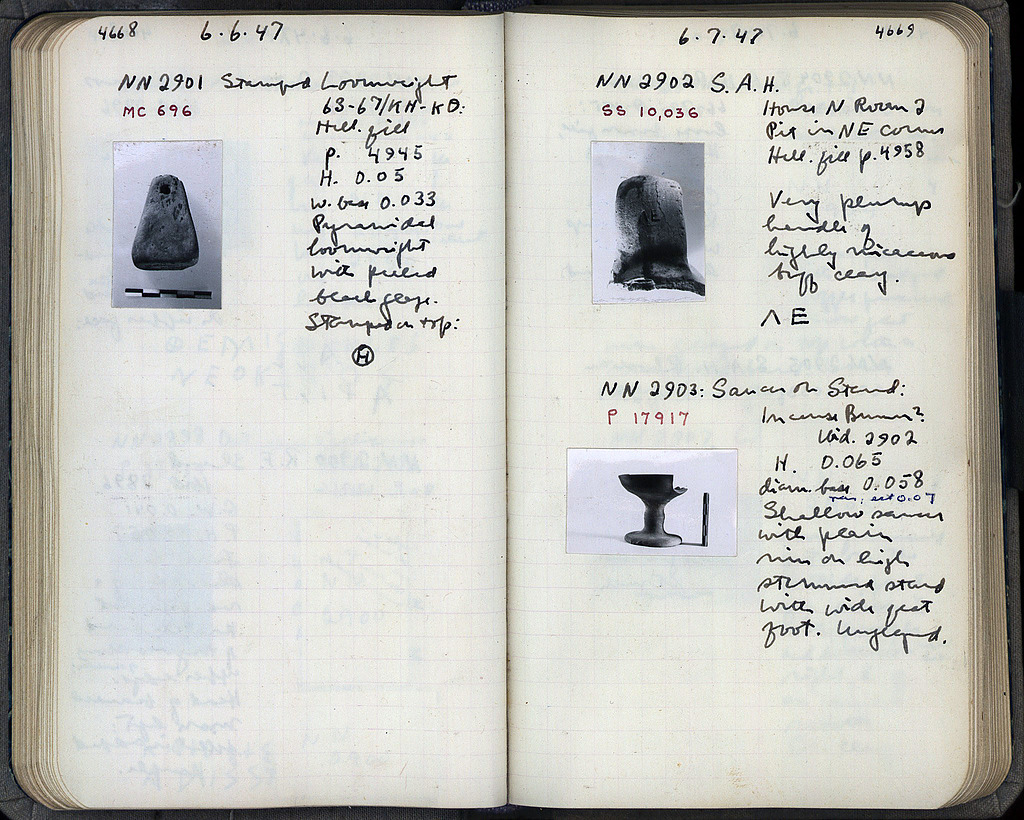 4668
6.6.47
NN 2901 Stamped Loomweight
MC 696
63-67/ΚΗ-ΚΘ:
Hell. fill
p. 4945
H. 0.05
W. base 0.033
Pyramidal
loomweight
with peeled
black glaze.
Stamped on top:
Η
6.7.47
4669
NN 2902 S.A.H.
SS 10,036
House N Room 2
Pit in NE corner
Hell. fill p. 4958
Very plump
handle of
highly micaceous
buff clay.
ΛΕ
NN 2903: Saucer on Stand:
P 17917
Incense Burner?
Ibid. 2902
H. 0.065
diam. base 0.058
rim, est 0.07
Shallow saucer
with plain
rim on high
stemmed stand
with wide flat
foot. Unglazed.